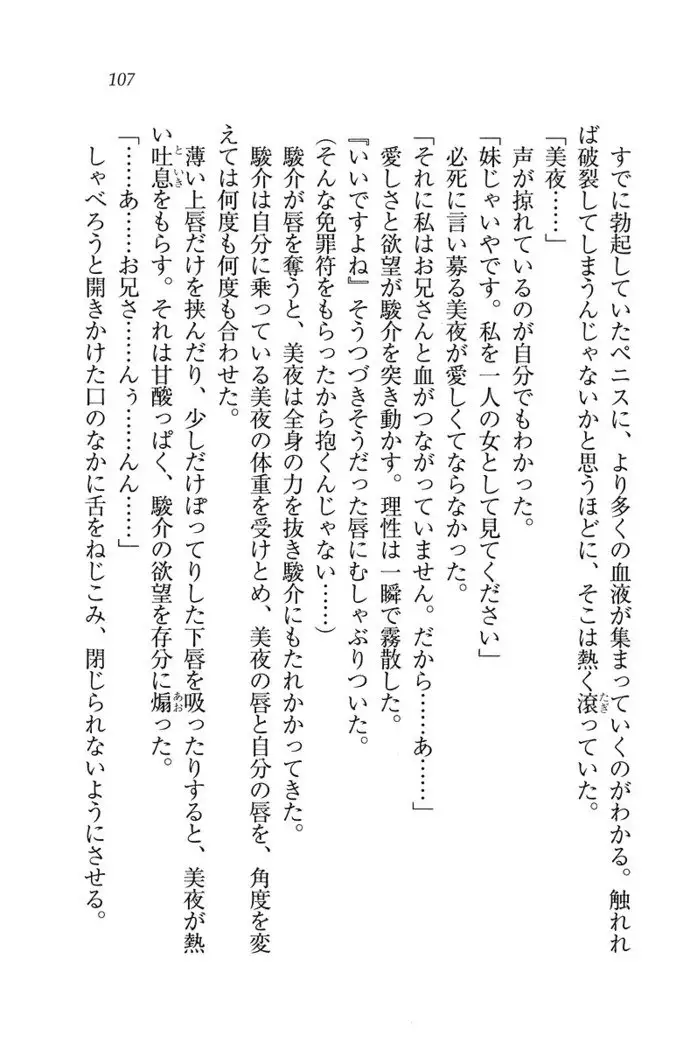 107
すでに勃起していたペニスに、より多くの血液が集まっていくのがわかる。触れれ
ば破裂してしまうんじゃないかと思うほどに、そこは熱く滾っていた。
「美夜……」
声が掠れているのが自分でもわかった。
「妹じゃいやです。私を一人の女として見てください」
必死に言い募る美夜が愛しくてならなかった。
「それに私はお兄さんと血がつながっていません。だから……あ……」
愛しさと欲望が駿介を突き動かす。理性は一瞬で霧散した。
『いいですよね』そうつづきそうだった唇にむしゃぶりついた。
(そんな免罪符をもらったから抱くんじゃない……)
駿介が唇を奪うと、美夜は全身の力を抜き駿介にもたれかかってきた。
駿介は自分に乗っている美夜の体重を受けとめ、美夜の唇と自分の唇を、角度を変
えては何度も何度も合わせた。
薄い上唇だけを挟んだり、少しだけぽってりした下唇を吸ったりすると、美夜が熱
い吐息をもらす。それは甘酸っぱく、駿介の欲望を存分に煽った。
「……あ……お兄さ……んぅ……んん……」
しゃべろうと開きかけた口のなかに舌をねじこみ、閉じられないようにさせる。